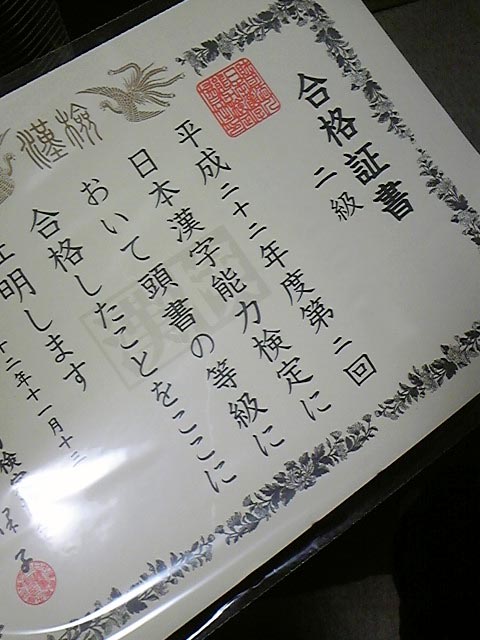 漢検
合格証書
二級
平成二十二年度第二回
日本漢字能力検定に
おいて頭書の等級に
合格したことをここに
証明します
十二年十一月十三
検定
子